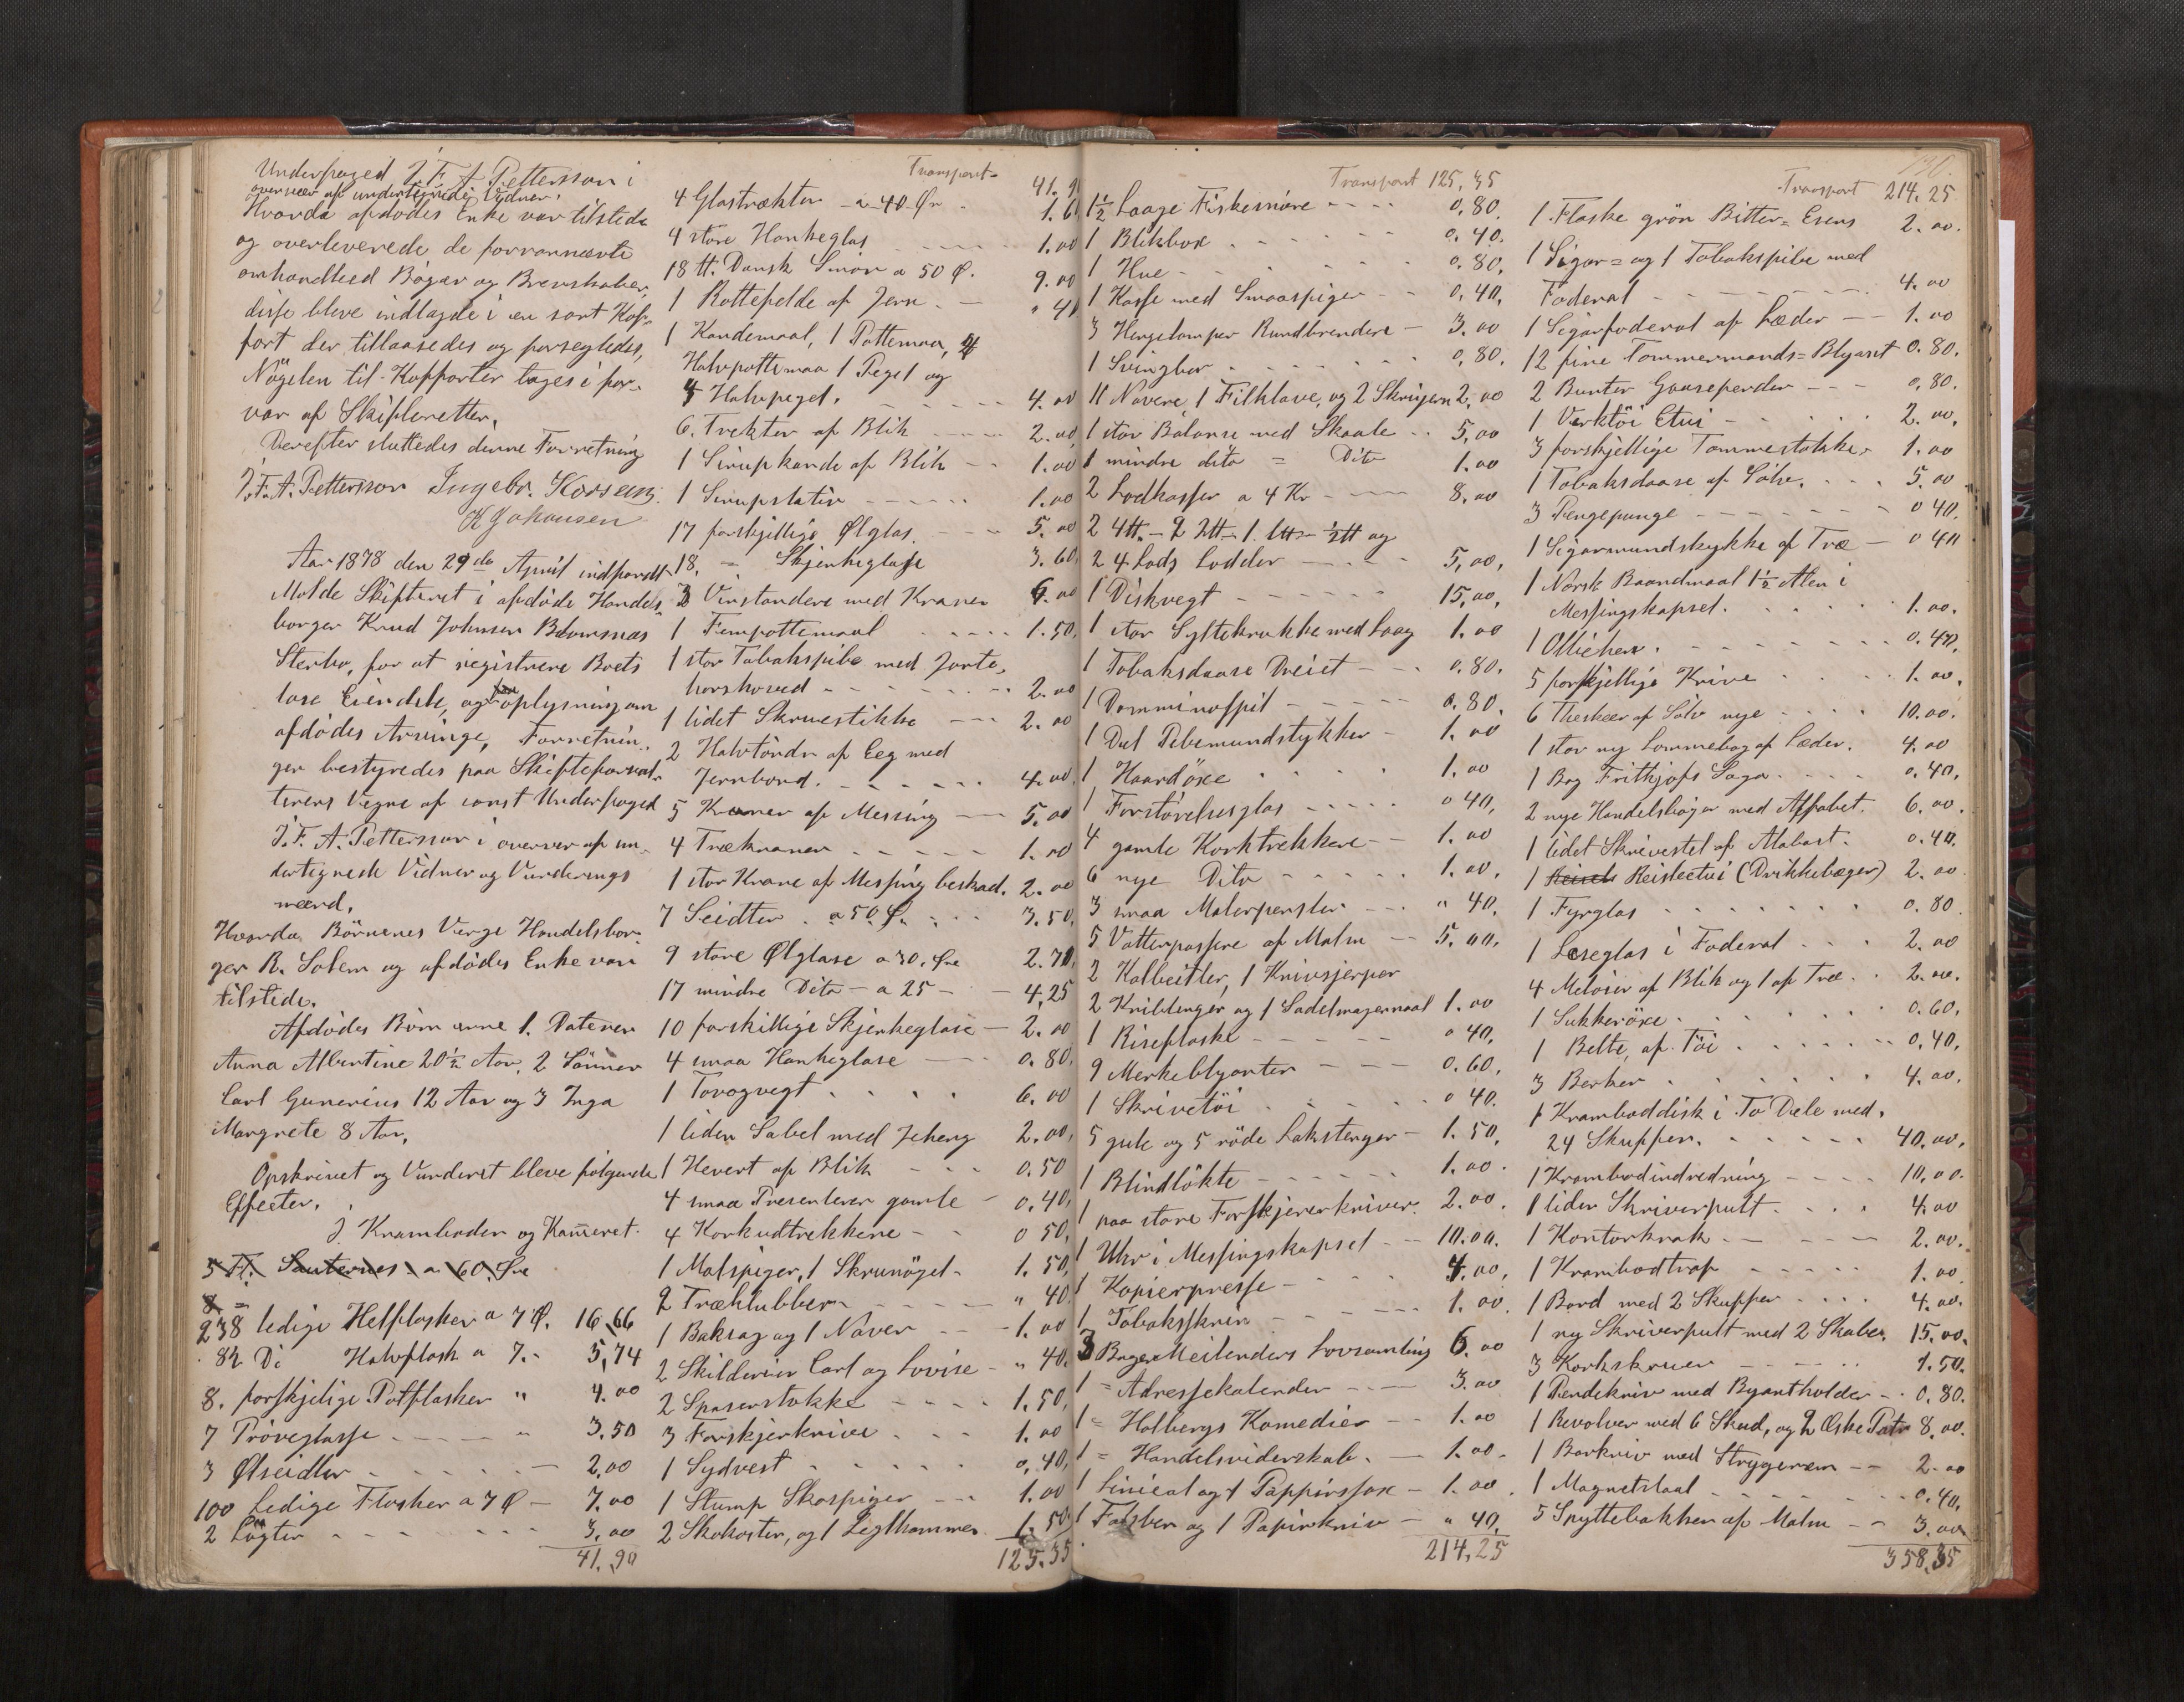 Underfoged J. F. A. Pettersson i
overvær af undertegnede Vidner.
Hvorda afdødes Enke var tilstede
og overleverede de forrannævte
omhandlied Bøger og Brevskaber,
disse bleve indlagde i en sort Kof-
fort der tillaasedes og forsegledes,
Nøgelen til Kofforter toges i for-
var af Skifteretten.
Derefter sluttedes denne Forretning
J. F. A. Pettersson Ingebr. Korsem.
K Johansen
Aar 1878 den 29de April indfandt
Molde Skifteret i afdøde Handels-
borger Knud Johnsen
Sterbo, for at registrere Boets
løse Eiendele, og for oplysning om
afdødes Arvinge, Forretnin-
ger bestyredes paa Skifteforval-
terens Vegne af const Underfoged
J. F. A. Pettersson i overvær af un-
dertegnede Vidner og Vurderings
mænd.
Hvorda Børnenes Verge Handelsbor-
ger R. Solem og afdødes Enke vare
tilstede.
Afdødes Børn ere 1. Dateren
Anna Albertine 20½ Aar, 2 Sønner
Carl Gunerius 12 Aar og 3 Inga
Margrete 8 Aar,
Opskrivet og Vurderet bleve følgende
Effecter.
J Kramboden og Kam̄eret.
5 Fl. Sauternes a 60 Øre
8 =
238 ledige Helflasker a 7 Ø. 16,66
82 Di Halvflask a 7.- 5,74
8. forskjelige Potflasker " 4.00
7 Prøveglasse - - - " 3.50
3 Ølseidler - - - 2,00
100 Ledige Flasker a 7 Ø - 7.00
2 Løgter - - - 3,00
41.90
Transport 41.9
4 Glastrækter - a 40 Ør - 1.6
4 store Hankeglas - - - 1.00
18 tt. Dansk Smør a 50 Ø. 9.00
1 Rottefelde af Jern. - " 40
1 Kandemaal, 1 Pottemaa, 4
Halvpottemaa 1 Pegel og
4 Halvpegel. - - - 4.00
6. Trekter af Blik - - 2.00
1 Sirupkande af Blik - - 1.00
1 Sirupstativ - - - 1.00
17 forskjellige Ølglas. - - 5.00
18. = Skjenkeglasse 3.60
3 Vinstandere med Kraner 6.00
1 Fempottemaal - - - 1.50
1 stor Tobakspibe med Jorte-
horshoved - - - 2.00
1 lidet Skruestikke - - - 2.00
2 Halvtøndr af Eeg med
Jernbond. - - - 4.00
5 Kraner af Messing - - 5.00
4 Trækraner - - - 1.00
1 stor Krane af Messing beskad. 2.00
7 Seidter . a 50 Ø. - - 3.50
9 store Ølglase a 30. Øre 2.70
17 mindre Dito - a 25 - - 4,25
10 forskillige Skjenkeglase - 2.00
4 smaa Hankeglase - - 0.80
1 Torvogvegt . . . 6.00
1 liden Sabel med Geheng 2.00
1 Hevert af Blik - - 0.50
4 smaa Presenterer gamle - 0.40
4 Korkudtrekkere - - 0 50
1 Malspiger, 1 Skrunøgel - 1.50
2 Træklubber - - - " 40
1 Baksag og 1 Naver - - 1.00
2 Skilderier Carl og Lovise - " 40
2 Spaserstokke - - - 1.50
3 Forskjerkniver - - - 1.00
1 Sydvest - - - 0,40
1 Stump Skospiger - - 1.00
2 Skokoster, og 1 Leglhammer 1.50
125.35
Transport 125,35
1½ Laage Fiskesnøre - - - 0,80
1 Blikbox - - - 0.40.
1 Hue - - - 0.80,
1 Kasse med Smaaspiger - - 0,40,
3 Hengelamper Rundbrendere - 3.00
1 Svingbor - - - 0,80.
11 Navere, 1 Filklave, og 2 Skrujern 2,00
1 stor Balanse med Skaale - - 5,00
1 mindre dito = Dito 1.00
2 Lodkasser a 4 Kr - - 8.00
2 4tt. - 2 2tt - 1. 1tt - ½tt og
2 4 Lods Lodder - - - 5,00,
1 Diskvegt - - - 15,00,
1 stor Syltekrukke med Laag 1.00
1 Tobaksdaase Dreiet - - 0.80.
1 Domminospil - - - 0.80.
1 Del Pibemundstykker - 1.00
1 Haardøxe - - - 1.00
1 Forstørelsesglas - - - 0 40,
4 gamle Korktrekkere - - 1.00
6 nye Dito - - - 1.00,
3 smaa Malerpensler - - " 40.
5 Vatterpassere af Malm - - 5.00.
2 Kolbeitler, 1 Knivsjerper
2 Knivlinger og 1 Sadelmagernaal 1.00
1 Riseflaske - - - 0 40,
9 Merkeblyanter - - - 0.60,
1 Skrivetøi - - - 0 40.
5 gule og 5 røde Lakstenger - 1.50,
1 Blindløkte - - - 1.00.
1 paa store Forskjererkniver. 2.00.
1 Uhr i Messingskapsel - - 10.00.
1 Kopierpresse - - - 4.00,
1 Tobaksskrin - - - 1.00.
3 Bøger Meilenders Lovsamling 6.00
1 = Adressekalender - - - 3.00
1 = Holbergs Komedier - - 1.00
1 = Handelsviderskab. - 1.00.
1 Linieal og 1 Pappirssax - 1.00.
1 Falsben og 1 Papirkniv - " 40.
214,25
190.
Transport 214.25
1 Flaske grøn Bitter = Esens 2.00.
1 Sigar = og 1 Tobakspibe med
Foderal - - - 4.00
1 Sigarfoderal af Læder - - 1.00
12 fine Tømmermands = Blyant 0.80.
2 Bunter Gaasepender - - - 0,80.
1 Verktøi Etui - - - 2.00,
3 forskjellige Tommestokke. 1.00
1 Tobaksdaase af Sølv. - - - 5.00
3 Pengepunge - - - 0 40.
1 Sigarmundstykke af Træ - 0 40
1 Norsk Baandmaal 1½ Alen i
Messingskapsel. - - - 1.00.
1 . - - - 0.40.
5 forskjellige Knive - - - 1.00,
6 Theskeer af Sølv nye - - - 10.00.
1 stor ny Lommebog af Læder. 4.00
1 Bog Frithjofs Saga. - - - 0.40.
2 nye Handelsbøger med Alfabet. 6.00.
1 lidet Skrivestel af Alabast. 0.40.
1 Reisels Reiselectui (Drikkebæger) 2.00
1 Fyrglas - - - 0.80
1 Leseglas i Foderal - - - 2.00
4 Meloser af Blik og 1 af Træ. - 2.00.
1 Sukkerøxe. - - - 0.60,
1 Belte, af Tøi - - - 0,40,
3 Berker - - - 4.00,
1 Kramboddisk i To Dele med.
24 Skuffer. - - - 40,00,
1 Krambodindredning - - - 10,00.
1 liden Skriverpult. - - - 4.00
1 Kontorkrak - - - 2.00.
1 Krambodtrap - - - 1.00
1 Bord med 2 Skuffer - - - 4.00.
1 ny Skriverpult med 2 Skabe. 15.00.
3 Korkskruer - - - 1.50.
1 Pendekniv med Byantholder - - 0.80.
1 Revolver med 6 Skud, og 2 Æske Patr 8.00.
1 Barkniv med Strygerem - - 2.00
1 Magnetstaal - - - 0.40,
5 Spyttebakker af Malm - - 3.00
358,35